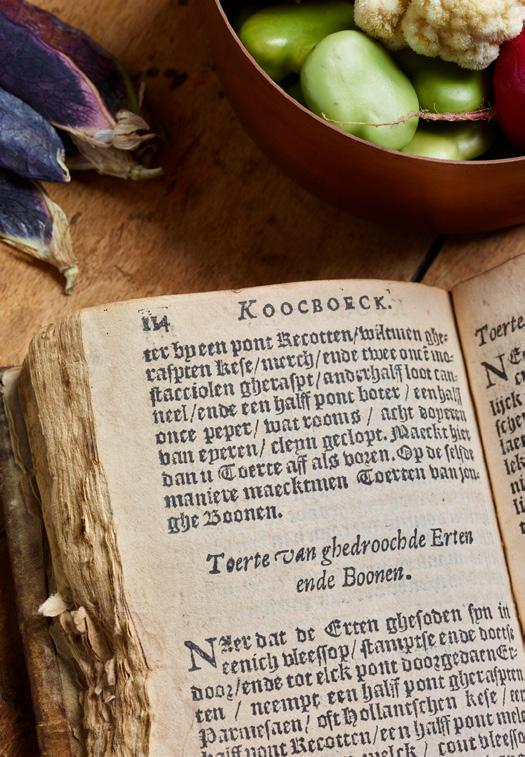 114 KOOCBOECK.
ter by een pont Recotten/wilmen ghe-
raspten kese/merch/ende twee oncē mo-
stacciolen gheraspt/anderhalff loot can-
neel/ende een halff pont boter / een halff
once peper/ wat rooms / acht doyeren
van eyeren/ cleyn geclopt. Maeckt hier
dan u Toerte aff als vozen. Op de selfde
maniere maecktmen Toerten van jon-
ghe Boonen.
Toerte van ghedroochde Erten
ende Boonen.
NAer dat de Erten ghesoden syn in
eenich vleessop/stamptse ende doetse
door/ende tot elck pont doorgedaen Er-
ten / neempt een halff pont gheraspten
Parmesaen/ oft Hollantschen kese / een
halff pont Recotten/een halff pont
melck / cout vleessop
Toerte
NEe
lijck